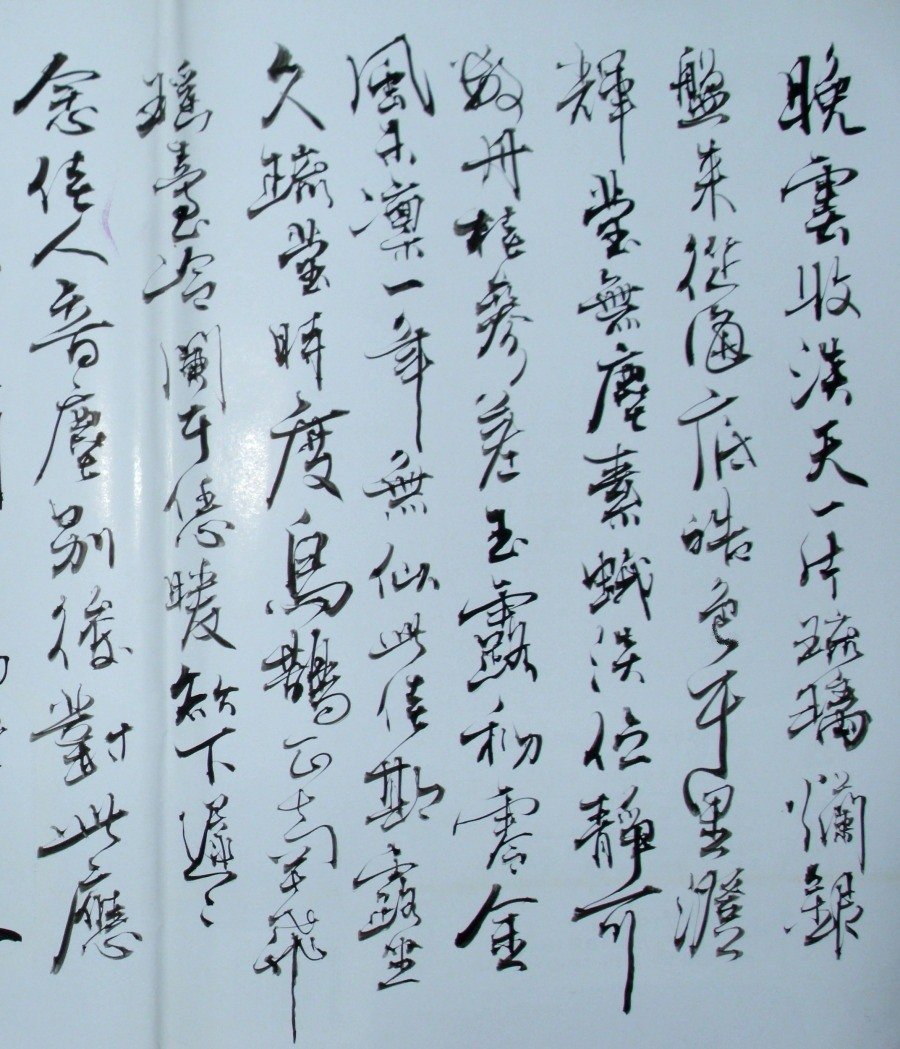 晚雲收淡天一片琉璃爛銀
盤來從海底皓色千里澄
輝瑩無塵素娥淡佇靜可
數丹桂參差玉露初零金
風未凜一年無似此佳期露坐
久疏螢時度烏鵲正南飛
瑤臺冷闌干憑暖欲下遲〻
念佳人音塵別後對此應